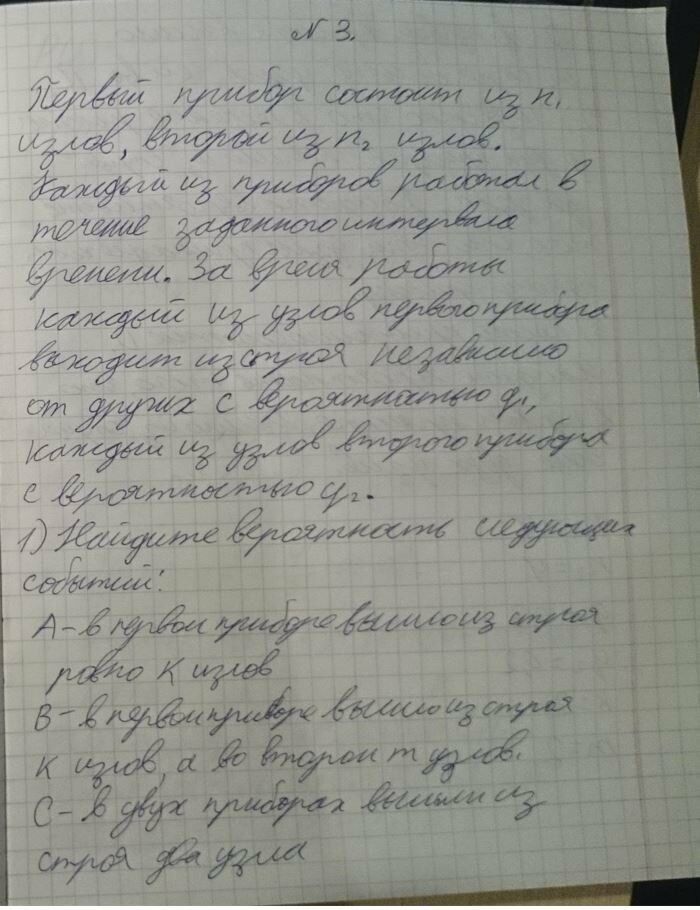 № 3.
Первый прибор состоит из n₁
излов, второй из n₂ излов.
Каждый из приборов работал в
течение заданного интервала
времени. За время работы
каждый из узлов первого прибора
выходит из строя независимо
от других с вероятностью q₁,
каждый из узлов второго прибора
с вероятностью q₂.
1) Найдите вероятность следующих
событий:
А – в первом приборе вышло из строя
ровно К излов
В – в первом приборе вышло из строя
К излов, а во втором m узлов.
С – в двух приборах вышли из
строя два узла